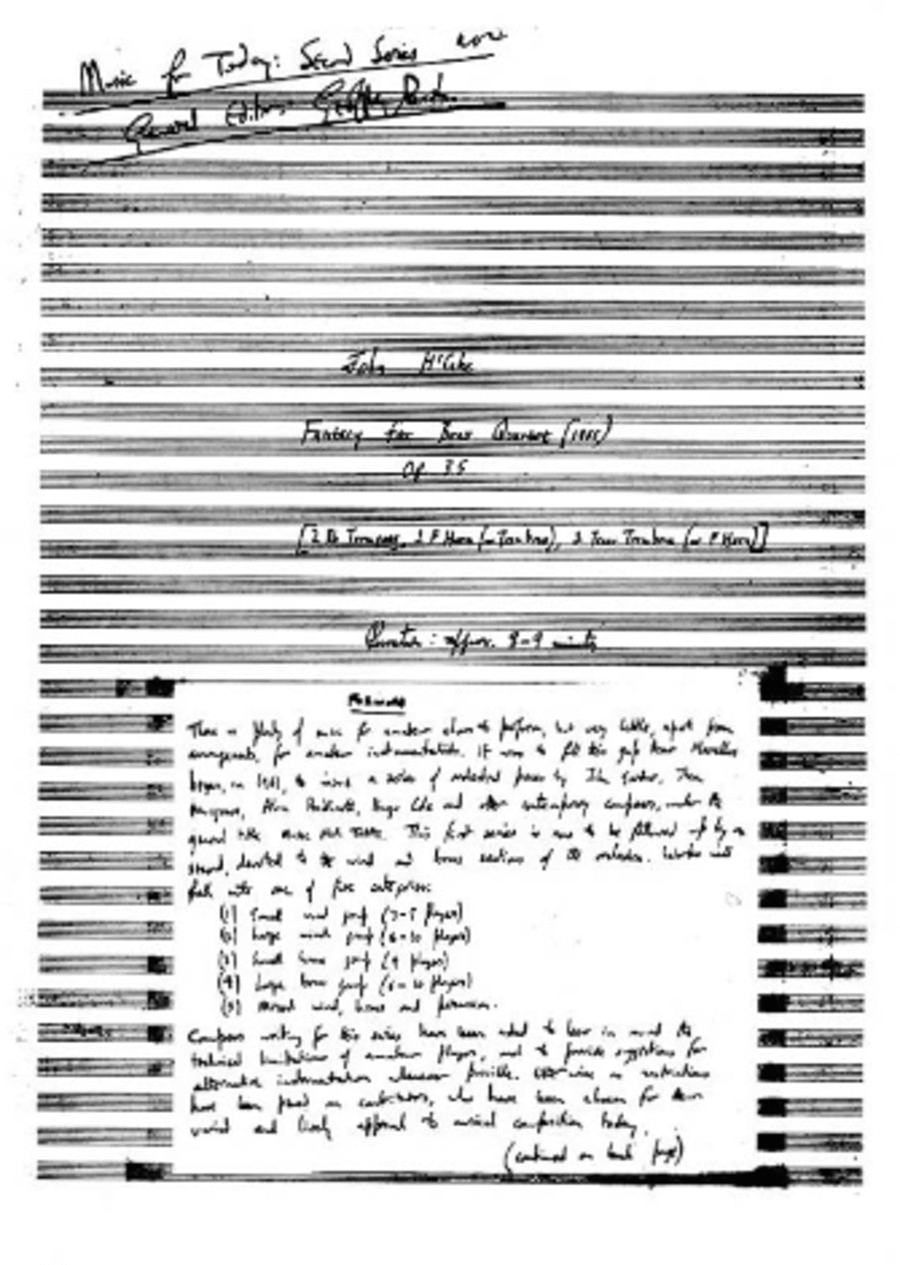 Music for Today: Second Series
General Editor: Geoffrey
John McCabe
Fantasy for Brass Quartet (1965)
Op. 35
[2 Bb Trumpets, 1 F Horn (or Trombone), 1 Tenor Trombone (or F Horn)]
Duration: approx. 8-9 minutes
Foreword
There is plenty of music for amateur to perform, but very little, apart from
arrangements, for amateur instrumentalists. It was to fill this gap that Novellos
began, in 1961, to a series of orchestral pieces by John Gardner, Thea
Musgrave, Hugo Cole and other contemporary composers, under the
general title Music for Today. This first series is now to be followed up by a
second, devoted to the wind and brass sections of the orchestra. Works will
fall into one of five categories:
(1) Small wind group (3-5 players)
(2) Large wind group (6-10 players)
(3) Small brass group (4 players)
(4) Large brass group (6-10 players)
(5) Mixed wind, brass and percussion.
Composers writing for this series have been asked to bear in mind the
technical limitations of amateur players, and to provide suggestions for
alternative instrumentation wherever possible. no restrictions
have been placed on contributors, who have been chosen for their
varied and lively approach to musical composition today.
(continued on back page)